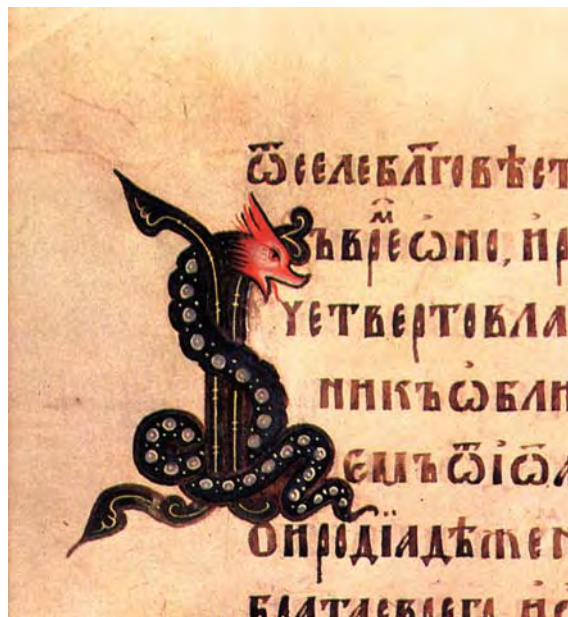 ѿселеблг҃овѣст
ъврⷨеѡно, ир
четвертовла
никъѡбли
емъѿіѡ҃
оиродїадѣжен
братасвоего, ис